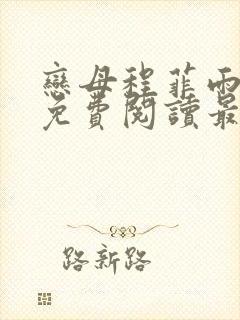 戀母程菲雨
免費閱讀最
路新路